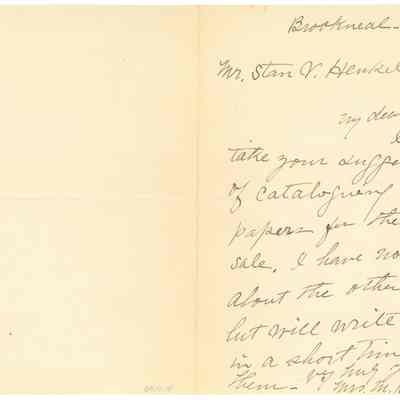 Brookneal-
Mr. Stan V. Henkel
My dear
I
take your sugge
of cataloguing
papers for the
sale. I have no
about the other
but will write
in a short tim
them-
Mrs. M.